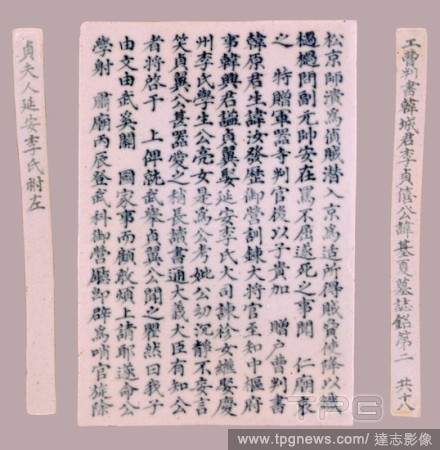 工曹判書韓城君李貞僖公諱基夏墓誌銘第二 共十八
松京師潰爲偵賊潛入京爲适所得賊脅使降以
撾問副元帥安在罵不屈遂死之事聞 仁廟哀
之 特贈軍器寺判官後以子貴加 贈戶曹判書
韓原君生諱汝發歷御營訓鍊大將官至知中樞府
事韓興君諡貞翼娶延安李氏大司諫袊女繼娶慶
州李氏學生公亮女是爲公考妣公幼沉靜不妄言
笑貞翼公甚器愛之稍長讀書通大義大臣有知公
者將啓于 上俾就武擧貞翼公聞之瞿然曰我子
由文由武奚關 國家事而顧敢煩上請耶遂命公
學射 肅廟丙辰登武科御營廳卽辟爲哨官旋除
貞夫人延安李氏祔左
TPG
www.tpgnews.com/達志影像